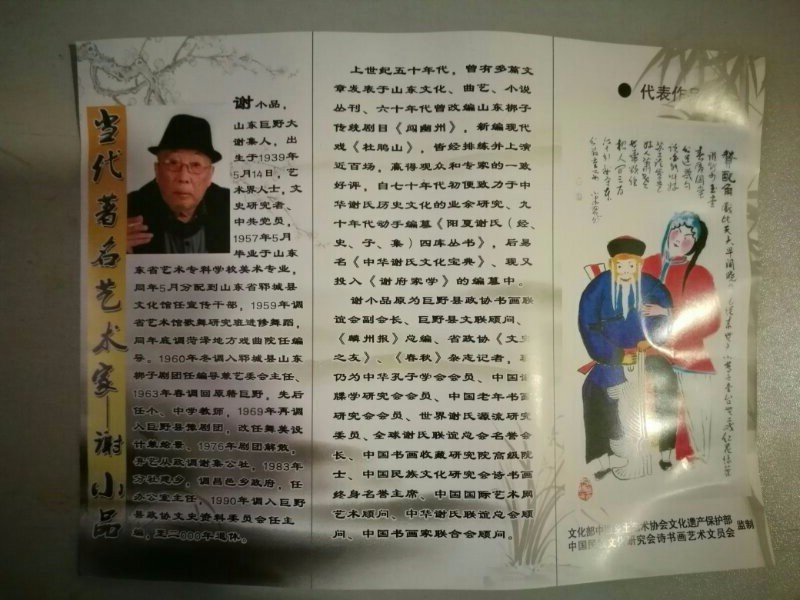 当代著名艺术家—谢小品
谢小品，
山东巨野大
谢集人，出
生于1939年
5月14日，艺
术界人士，文
史研究者、
中共党员，
1957年5月
毕业于山东
省艺术专科学校美术专业，
同年5月分配到山东省郓城县
文化馆任宣传干部，1959年调
省艺术馆歌舞研究班进修舞蹈，
同年底调菏泽地方戏曲院任编
导。1960年冬调入郓城县山东
梆子剧团任编导兼艺委会主任、
1963年春调回原籍巨野，先后
任小、中学教师，1969年再调
入巨野县豫剧团，改任舞美设
计兼绘景、1976年剧团解散，
弃艺从政调谢集公社，1983年
调昌邑乡政府，任
办公室主任，1990年调入巨野
县政协文史资料委员会任主
至二000年退休。
上世纪五十年代，曾有多篇文
章发表于山东文化、曲艺、小说
丛刊、六十年代曾改编山东梆子
传统剧目《闯幽州》，新编现代
戏《杜鹃山》，皆经排练并上演
近百场，赢得观众和专家的一致
好评，自七十年代初便致力于中
华谢氏历史文化的业余研究、九
十年代动手编纂《阳夏谢氏（经、
史、子、集）四库丛书》，后易
名《中华谢氏文化宝典》、现又
投入《谢府家学》的编纂中。
谢小品原为巨野县政协书画联
谊会副会长、巨野县文联顾问、
《麟州报》总编、省政协《文史
之友》、《春秋》杂志记者，
仍为中华孔子学会会员、中国谱
牒学研究会会员、中国老年书画
研究会会员、世界谢氏源流研究
委员、全球谢氏联谊总会名誉会
长、中国书画收藏研究院高级院
士、中国民族文化研究会诗书画
终身名誉主席、中国国际艺术网
艺术顾问、中华谢氏联谊总会顾
问、中国书画家联合会顾问。
●代表作
文化部中 术协会文化遗产保护部
中国民 研究会诗书画艺术文员会
监制